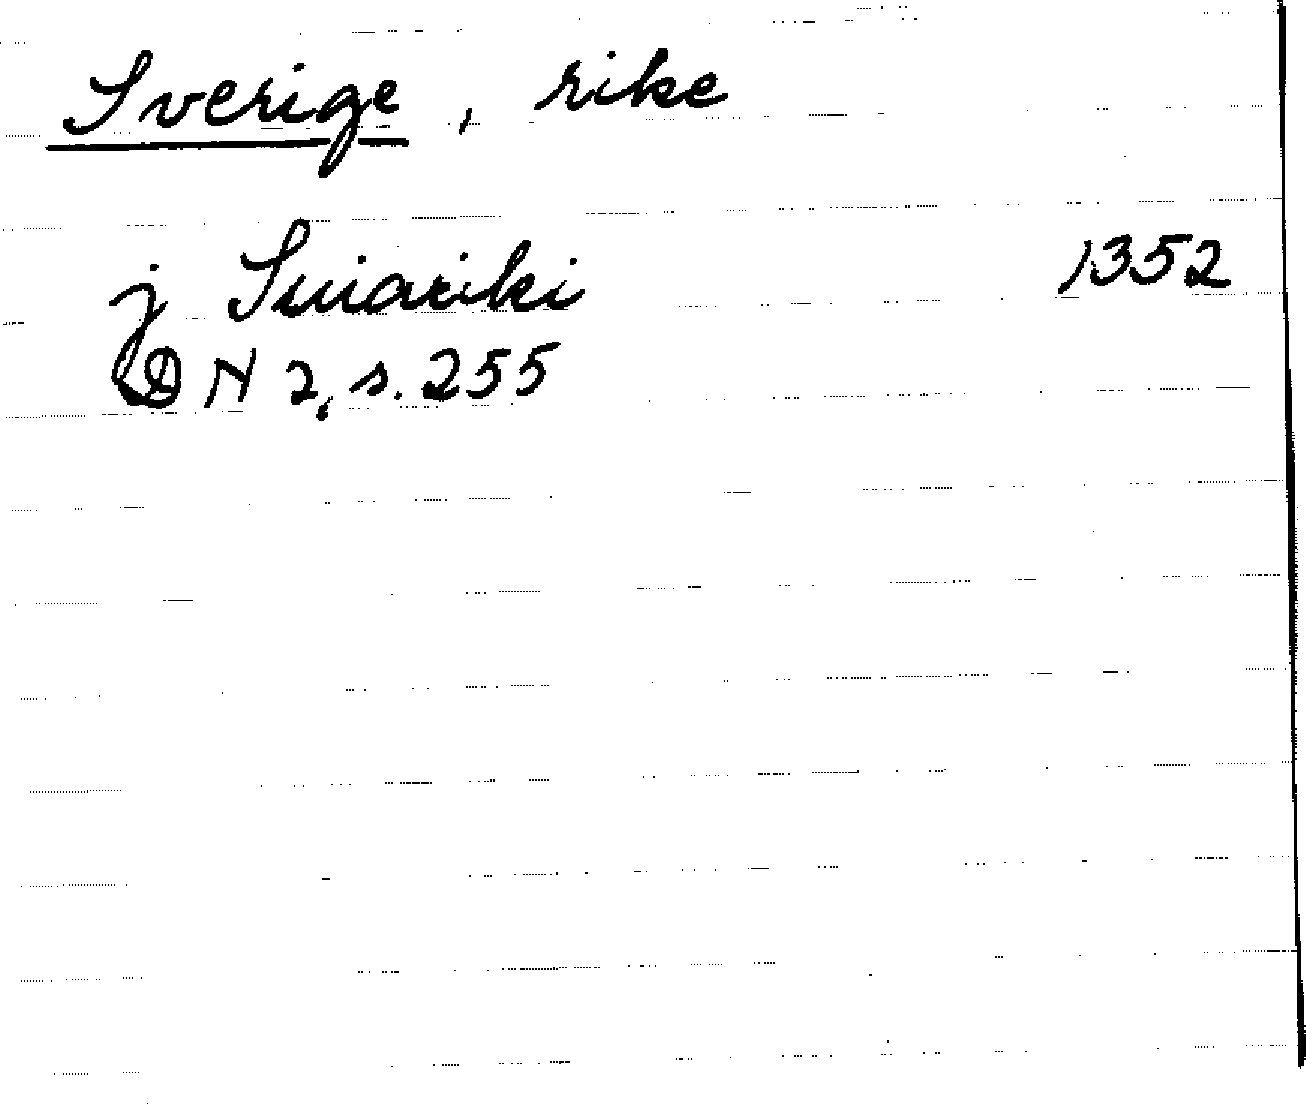 Sverige, rike
j Suiariki 1352
DN 2, s. 255